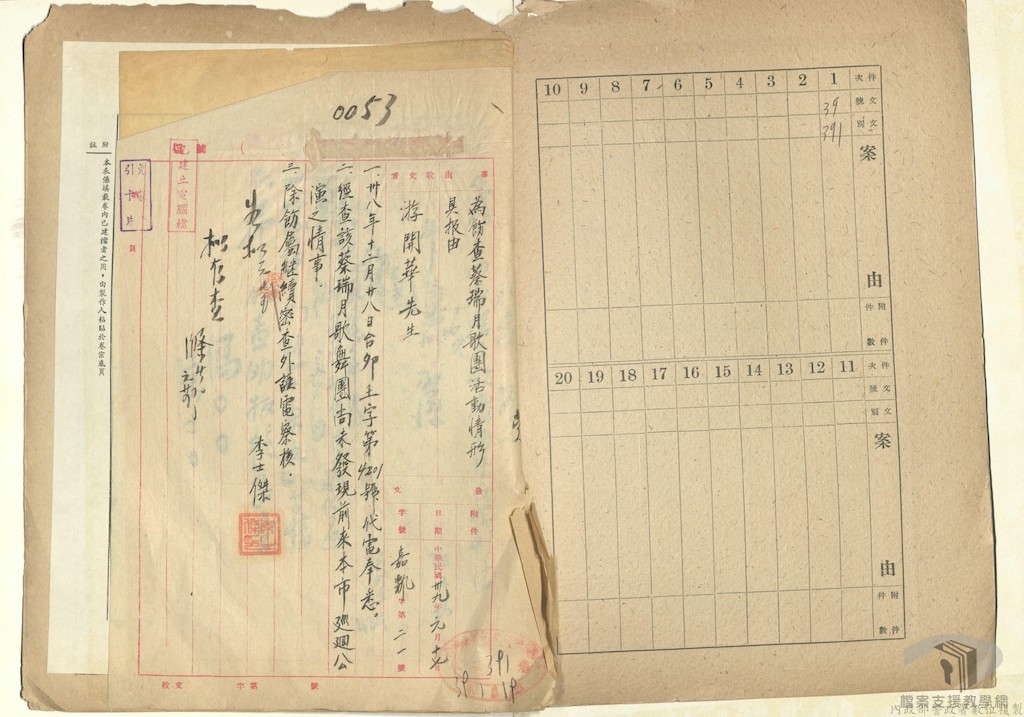 件次 1 2 3 4 5 6 7 8 9 10
文號 39
文別 391
案
由
附件
件數
件次 11 12 13 14 15 16 17 18 19 20
文號
文別
案
由
附件
件數
0053
事由歌文
為飭查蔡瑞月歌團活動情形
具报由
附件
日期 中華民國卅九年元月十七日
字號 嘉凱字第二一號
游開華先生
一、卅八年十二月廿八日台卯王字第4201號代電奉悉。
二、經查該蔡瑞月歌舞團尚未發現前來本市廵迴公
演之情事。
三、除飭屬继續密查外謹電察核。
李士傑
拟存查
已建立電腦檔
引卡片
頁
附註
本表僅填載卷內已建檔者之用，由製作人粘貼於卷宗底頁
收文 字第 號
391
39 1 19
檔案支援教學網
內政部警政署數位複製